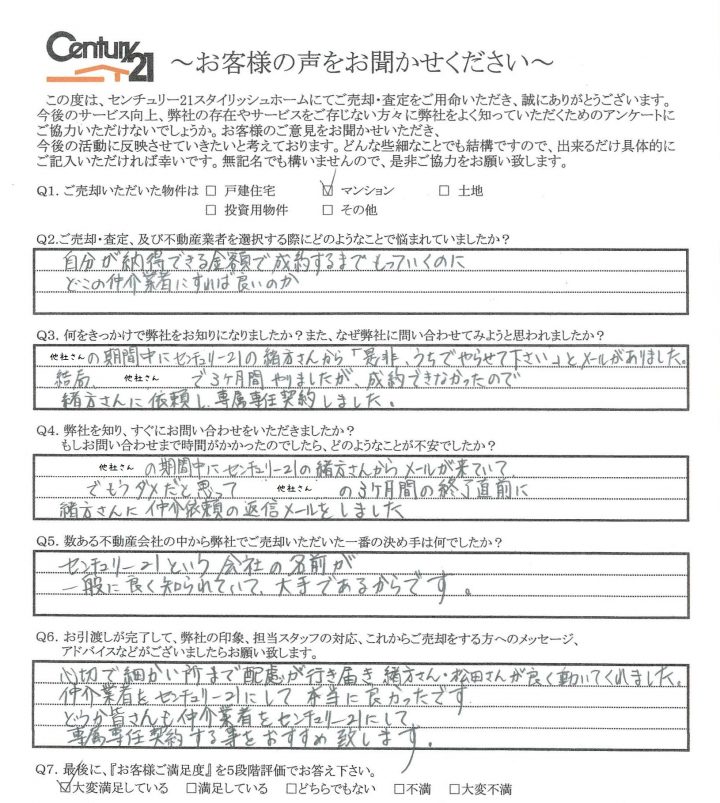 Century 21
～お客様の声をお聞かせください～
この度は、センチュリー21スタイリッシュホームにてご売却・査定をご用命いただき、誠にありがとうございます。
今後のサービス向上、弊社の存在やサービスをご存じない方々に弊社をよく知っていただくためのアンケートに
ご協力いただけないでしょうか。お客様のご意見をお聞かせいただき、
今後の活動に反映させていきたいと考えております。どんな些細なことでも結構ですので、出来るだけ具体的に
ご記入いただければ幸いです。無記名でも構いませんので、是非ご協力をお願い致します。
Q1. ご売却いただいた物件は □ 戸建住宅 ☑ マンション □ 土地
□ 投資用物件 □ その他
Q2.ご売却・査定、及び不動産業者を選択する際にどのようなことで悩まれていましたか？
自分が納得できる金額で成約するまでもっていくのに
どこの仲介業者にすれば良いのか
Q3. 何をきっかけで弊社をお知りになりましたか？また、なぜ弊社に問い合わせてみようと思われましたか？
他社さんの期間中にセンチュリー21の緒方さんから「是非、うちでやらせて下さい」とメールがありました。
結局、他社さんで3ヶ月間やりましたが、成約できなかったので
緒方さんに依頼し、専属専任契約しました。
Q4. 弊社を知り、すぐにお問い合わせをいただきましたか？
もしお問い合わせまで時間がかかったのでしたら、どのようなことが不安でしたか？
他社さんの期間中にセンチュリー21の緒方さんからメールが来ていて、
でもうダメだと思って 他社さんの3ヶ月間の終了直前に
緒方さんに仲介依頼の返信メールをしました
Q5. 数ある不動産会社の中から弊社でご売却いただいた一番の決め手は何でしたか？
センチュリー21という会社の名前が
一般に良く知られていて、大手であるからです。
Q6. お引渡しが完了して、弊社の印象、担当スタッフの対応、これからご売却をする方へのメッセージ、
アドバイスなどがございましたらお願い致します。
心切で細かい所まで配慮が行き届き 緒方さん・松田さんが良く動いてくれました。
仲介業者をセンチュリー21にして本当に良かったです
どうか皆さんも仲介業者をセンチュリー21にして
専属専任契約する事をおすすめ致します。
Q7. 最後に、『お客様ご満足度』を5段階評価でお答え下さい。
☑大変満足している □満足している □どちらでもない □不満 □大変不満